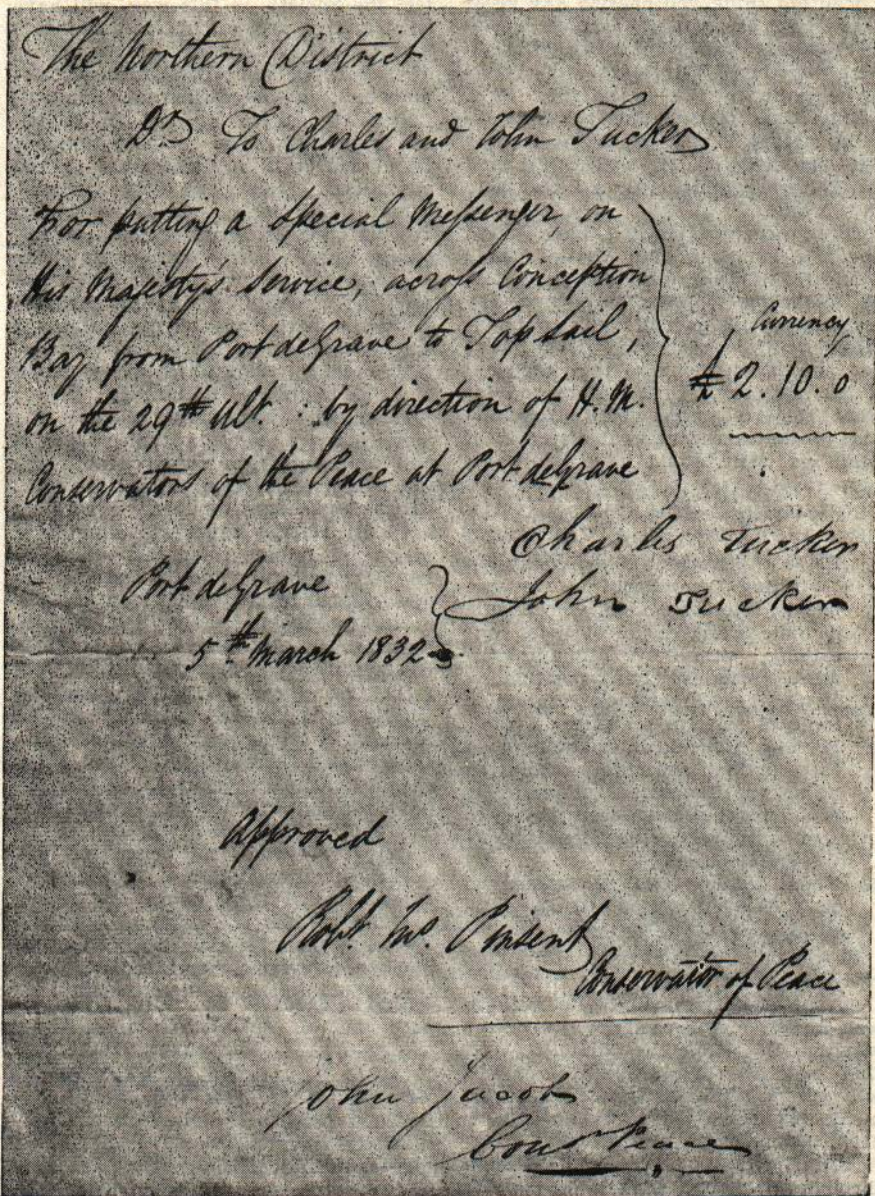 The Northern District
Dr To Charles and John Tucker
For putting a special Messenger, on
His Majesty's Service, across Conception
Bay from Port de Grave to Topsail,
on the 29th Ult. : by direction of H.M.
Conservators of the Peace at Port de Grave
Currency
£2.10.0
Charles Tucker
John Tucker
Port de Grave
5th March 1832
Approved
Robt. Jno. Pinsent
Conservator of Peace
John Jacob
Consr Peace